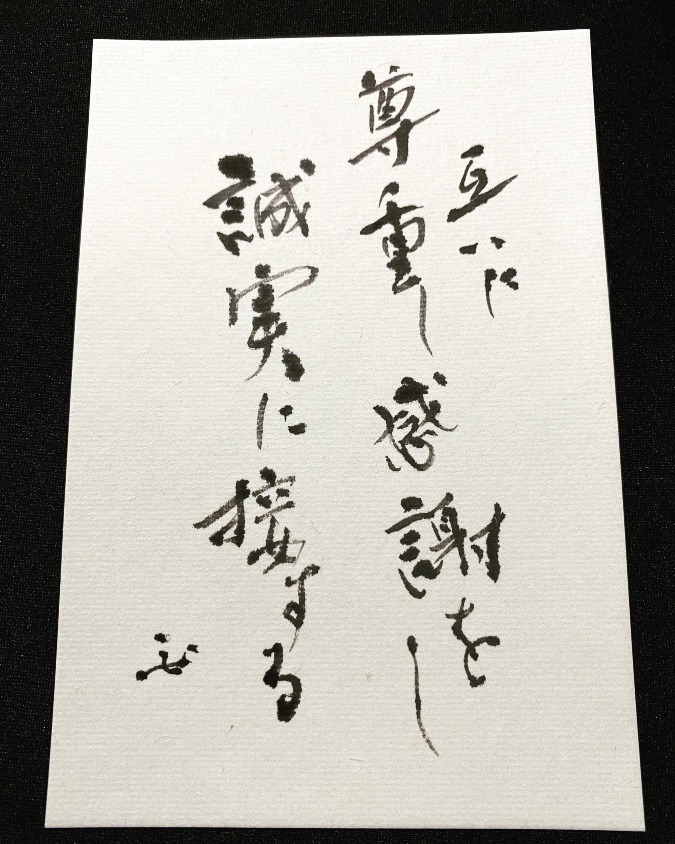 互いに
尊重し感謝をし
誠実に接する